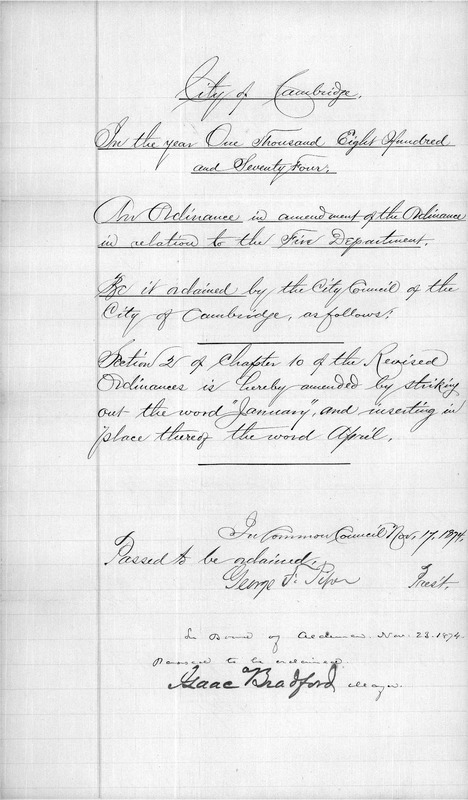 City of Cambridge.
In the year One Thousand Eight Hundred
and Seventy Four.
An Ordinance in amendment of the Ordinance
in relation to the Fire Department.
Be it ordained by the City Council of the
City of Cambridge, as follows:
Section 2 of Chapter 10 of the Revised
Ordinances is hereby amended by striking
out the word "January", and inserting in
place thereof the word April.
In Common Council Nov. 17. 1874.
Passed to be ordained.
George F. Piper Prest.
In Board of Aldermen Nov. 23. 1874.
Passed to be ordained.
Isaac Bradford Mayor.